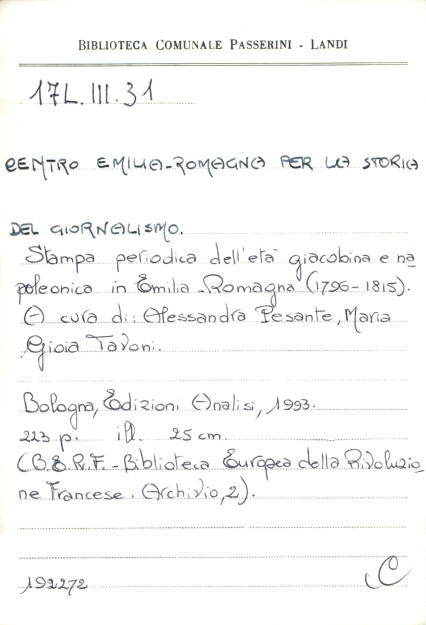 BIBLIOTECA COMUNALE PASSERINI - LANDI
17L.III.31
CENTRO EMILIA-ROMAGNA PER LA STORIA
DEL GIORNALISMO.
Stampa periodica dell'età giacobina e na
poleonica in Emilia-Romagna (1796-1815).
A cura di: Alessandra Pesante, Maria
Gioia Tavoni.
Bologna, Edizioni Analisi, 1993.
223 p. ill. 25 cm.
(B.E.R.F.-Biblioteca Europea della Rivoluzio
ne Francese. Archivio, 2).
192272
C